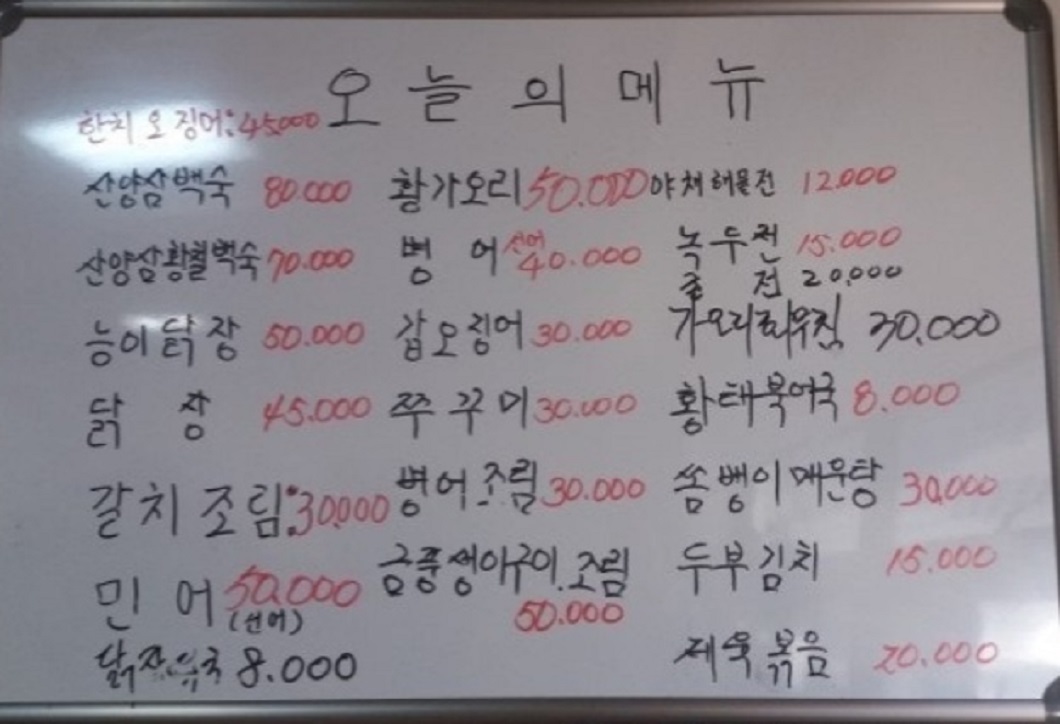 오늘의 메뉴
한치 오징어: 45,000
산양삼백숙 80.000
산양삼황칠백숙 70.000
능이닭장 50.000
닭장 45.000
갈치조림: 30,000
민어 50,000
(선어)
8.000
황가오리 50.000
병어 선어 40.000
갑오징어 30.000
쭈꾸미 30.000
병어조림 30.000
금풍생이구이.조림
50.000
야채해물전 12.000
녹두전 15.000
전 20,000
가오리찌우침 30,000
황태북어국 8.000
쏨뱅이매운탕 30,000
두부김치 15.000
제육볶음 20.000